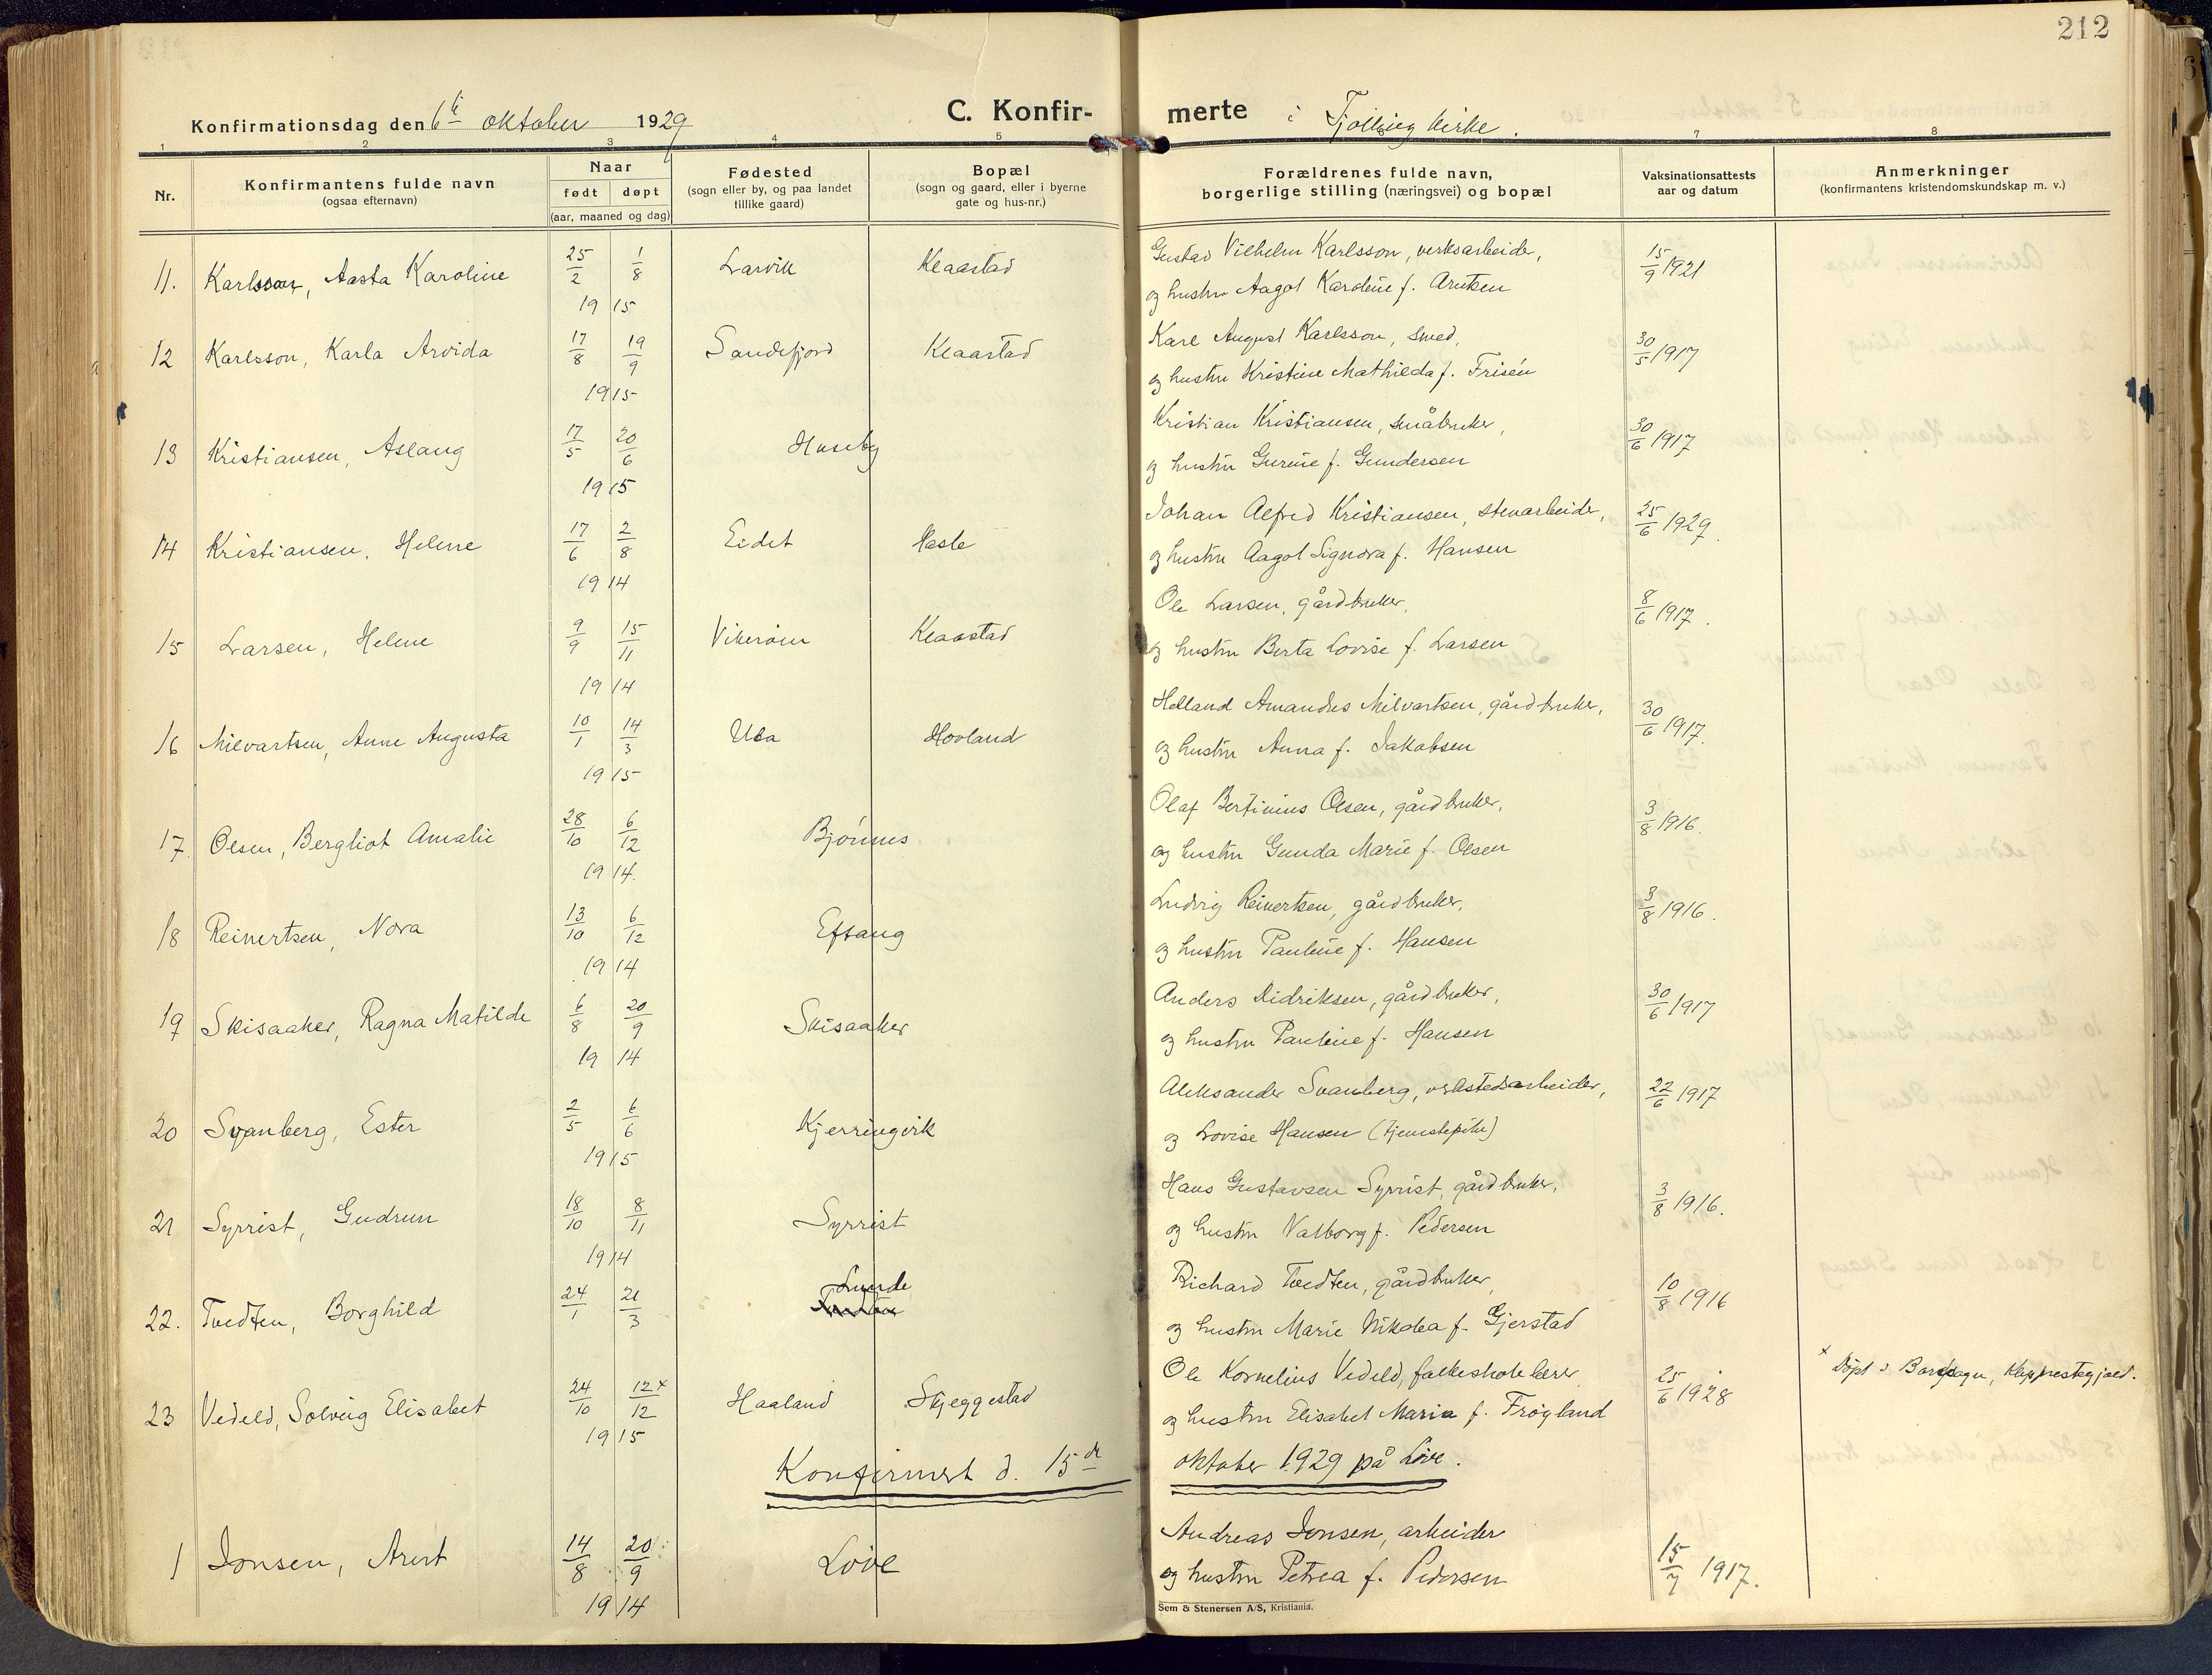 212
Konfirmationsdag den 6te oktober 1929
C. Konfir-
merte i Tjølling kirke.
1 2 3 4 5 7 8
Nr.
Konfirmantens fulde navn
(ogsaa efternavn)
Naar
født døpt
(aar, maaned og dag)
Fødested
(sogn eller by, og paa landet
tillike gaard)
Bopæl
(sogn og gaard, eller i byerne
gate og hus-nr.)
Forældrenes fulde navn,
borgerlige stilling (næringsvei) og bopæl
Vaksinationsattests
aar og datum
Anmerkninger
(konfirmantens kristendomskundskap m. v.)
11. Karlsson, Aasta Karoline 25/2 1/8 Larvik Klaastad
1915
Gustav Vilhelm Karlsson, verksarbeider, 15/9 1921
og hustru Aagot Karoline f. Arntsen
12 Karlsson, Karla Arvida 17/8 19/9 Sandefjord Klaastad
1915
Karl August Karlsson, smed, 30/5 1917
og hustru Kristine Mathilda f. Frisén
13 Kristiansen, Aslaug 17/5 20/6 Huseby
1915
Kristian Kristiansen, småbruker, 30/6 1917
og hustru Gurine f. Gundersen
14 Kristiansen, Helene 17/6 2/8 Eidet Hasle
1914
Johan Alfred Kristiansen, stenarbeider, 25/6 1929.
og hustru Aagot Signora f. Hansen
15 Larsen, Helene 9/9 15/11 Vikerøen Klaastad
1914
Ole Larsen, gårdbruker, 8/6 1917.
og hustru Berta Lovise f. Larsen
16 Milvartsen, Anne Augusta 10/1 14/3 Ula Hovland
1915
Helland Amandus Milvartsen, gårdbruker, 30/6 1917.
og hustru Anna f. Jakobsen
17. Olsen, Bergliot Amalie 28/10 6/12 Bjønnes
1914.
Olaf Bertinius Olsen, gårdbruker, 3/8 1916.
og hustru Gunda Marie f. Olsen
18 Reinertsen, Nora 13/10 6/12 Eftang
1914
Ludvig Reinertsen, gårdbruker, 3/8 1916.
og hustru Pauline f. Hansen
19 Skisaaker, Ragna Matilde 6/8 20/9 Skisaaker
1914
Anders Didriksen, gårdbruker, 30/6 1917
og hustru Pauline f. Hansen
20 Svanberg, Ester 2/5 6/6 Kjerringvik
1915
Aleksander Svanberg, verkstedsarbeider, 22/6 1917
og Lovise Hansen (tjenestepike)
21 Syrrist, Gudrun 18/10 8/11 Syrrist
1914
Hans Gustavsen Syrrist, gårdbruker, 3/8 1916.
og hustru Valborg f. Pedersen
22. Tvedten, Borghild 24/1 21/3 Lunde
Richard Tvedten, gårdbruker, 10/8 1916
og hustru Marie Nikolea f. Gjerstad
23 Vedeld, Solveig Elisabet 24/10 12x/12 Haaland Skjeggestad
1915
Ole Kornelius Vedeld, folkeskolelærer 25/6 1928
og hustru Elisabet Maria f. Frøyland
x Døpt i
Konfirmert d. 15de oktober 1929 på Løve.
1 Jonsen, Arent 14/8 20/9 Løve
1914
Andreas Jonsen, arbeider 15/7 1917.
og hustru Petrea f. Pedersen
Sem & Stenersen A/S, Kristiania.